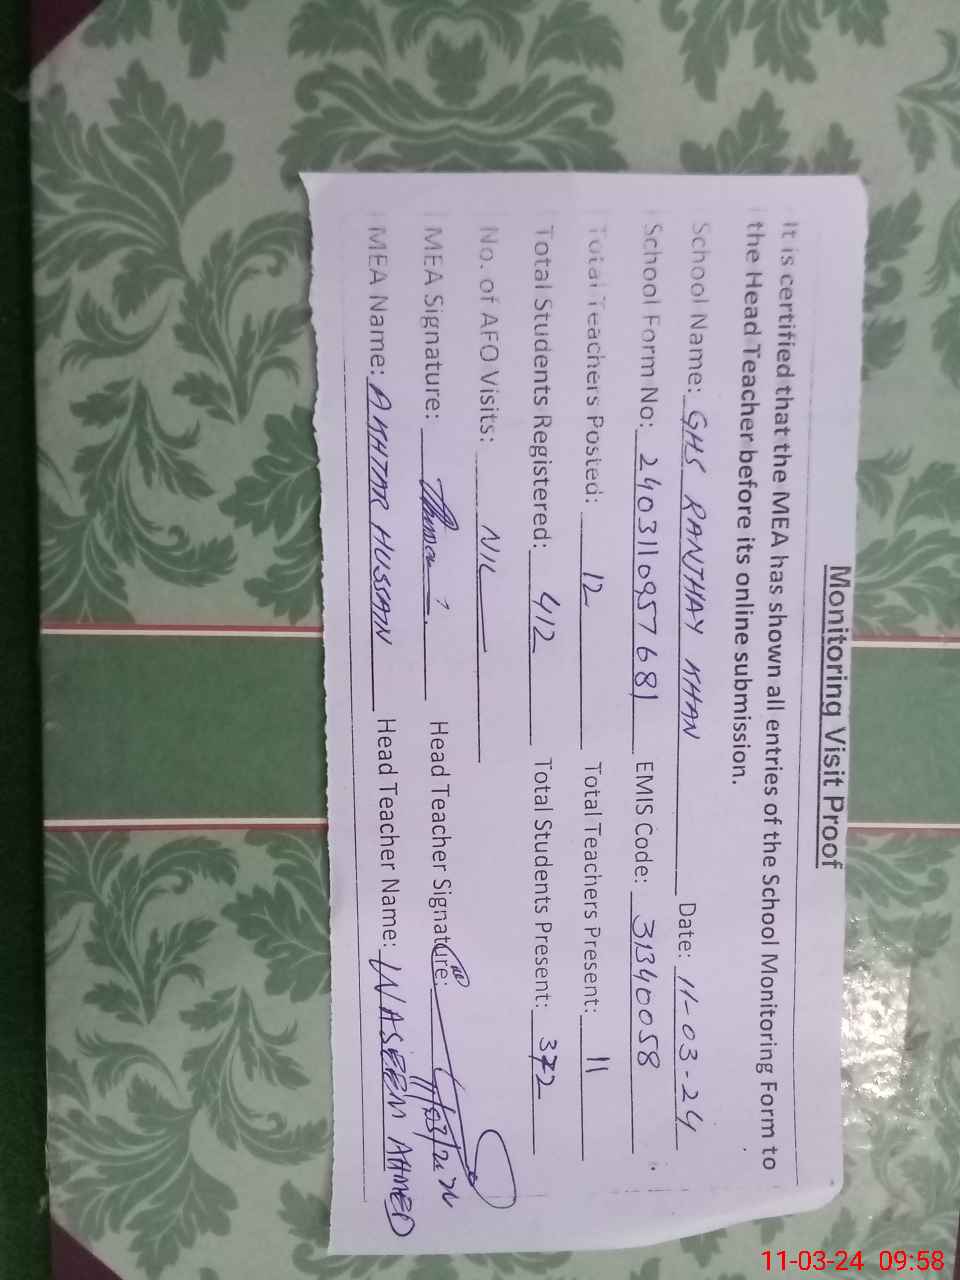 Monitoring Visit Proof
It is certified that the MEA has shown all entries of the School Monitoring Form to
the Head Teacher before its online submission.
School Name: GHS RANJHAY KHAN Date: 11-03-24
School Form No: 2403110957681 EMIS Code: 31340058
Total Teachers Posted: 12 Total Teachers Present: 11
Total Students Registered: 412 Total Students Present: 372
No. of AFO Visits: NIL
MEA Signature: Head Teacher Signature: 11/03/2024
MEA Name: AKHTAR HUSSAN Head Teacher Name: WASEEM AHMED
11-03-24 09:58